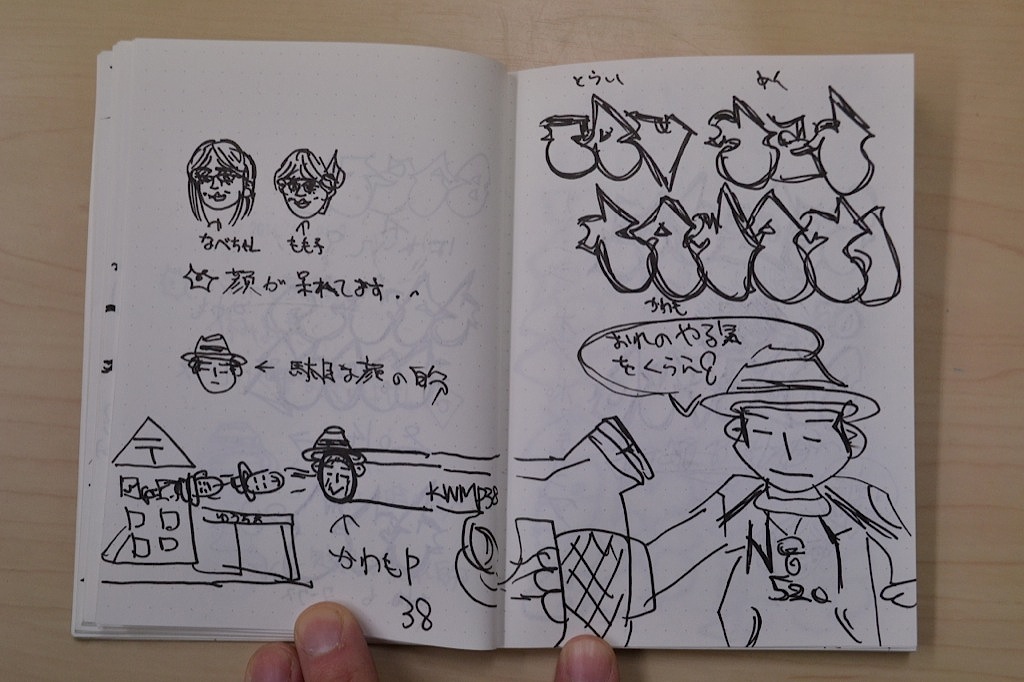 なべちゃん
もも子
顔が呆れてます・・
← 駄目な顔の自分
〒
ゆうちょ
KWMP38
かわもP
38
とらい
めく
かわも
おれのやる気
をくらえ
NG
520